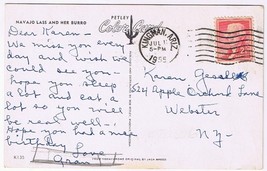 NAVAJO LASS AND HER BURRO
PETLEY
Color Card
KINGMAN, ARIZ.
JUL 11
5-PM
1955
Dear Karen -
We miss you every
day and wish we
could see you.
Hope you sleep
a lot and eat a
lot so you will
be real well.
Hope you had a nice
birthday Love
Gran
Karen
524 Apple Orchard Lane
Webster
N.Y.